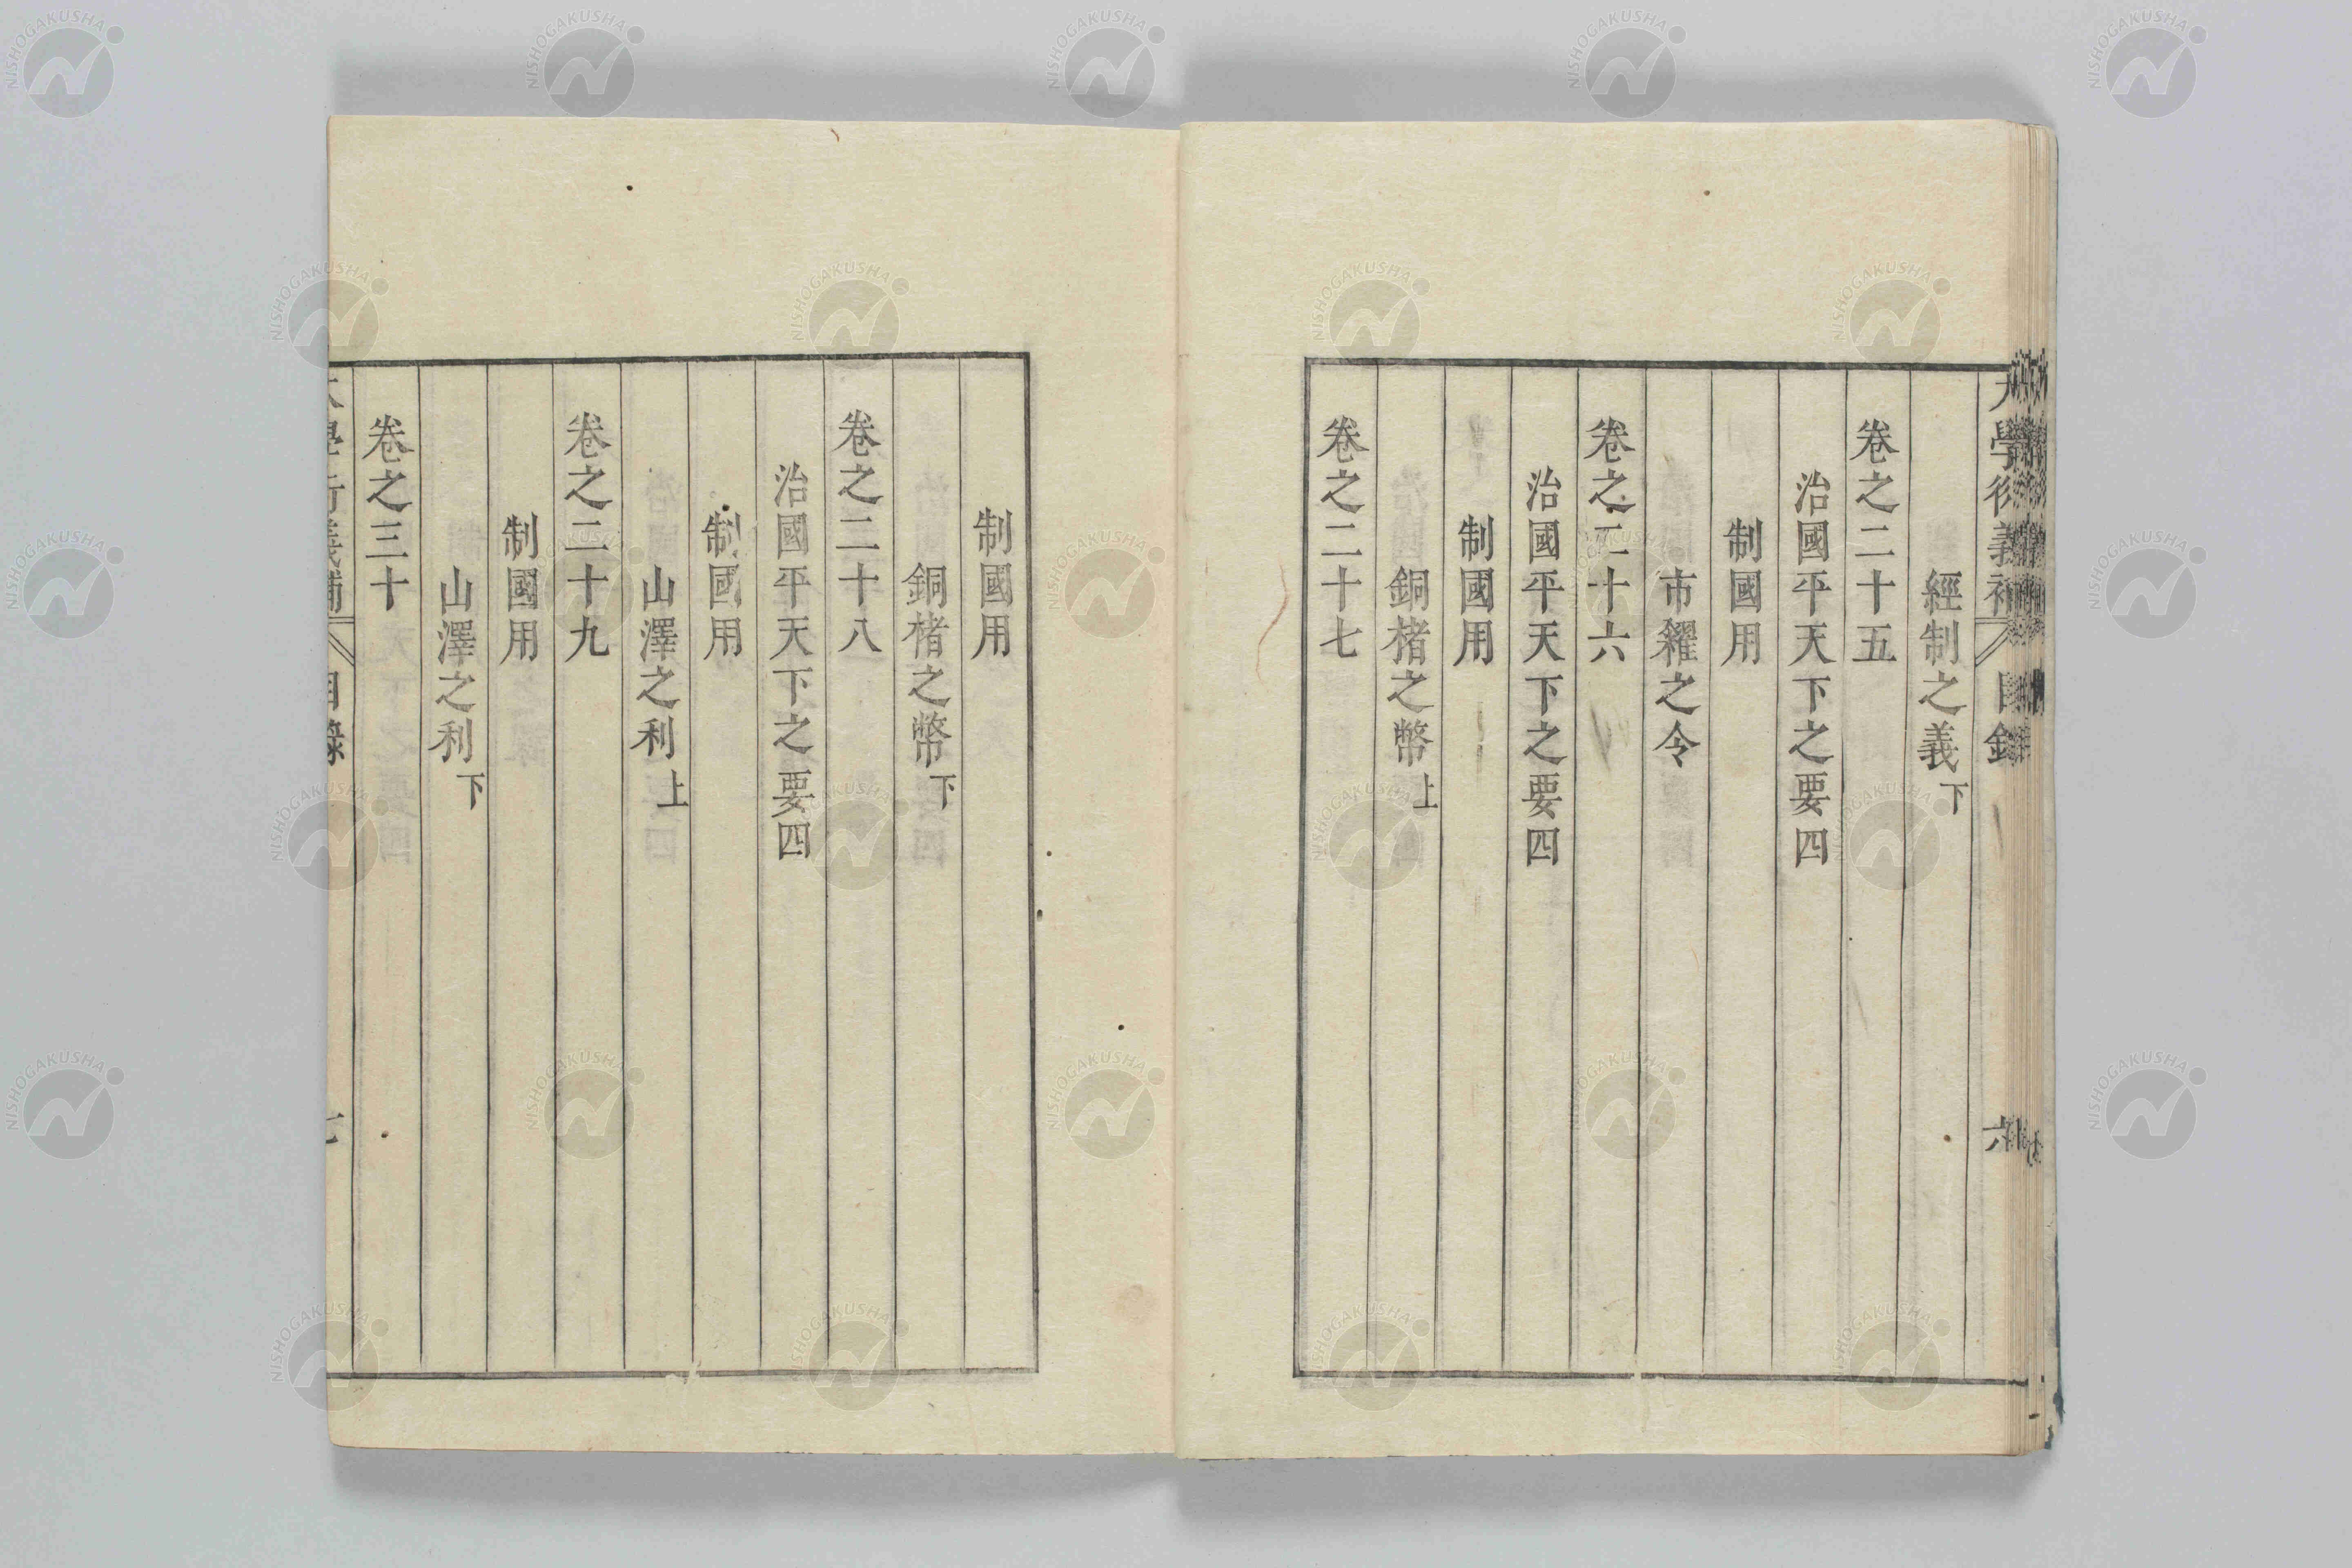 經制之義下
卷之二十五
治國平天下之要四
制國用
市糴之令
卷之二十六
治國平天下之要四
制國用
銅楮之幣上
卷之二十七
制國用
銅楮之幣下
卷之二十八
治國平天下之要四
制國用
山澤之利上
卷之二十九
制國用
山澤之利下
卷之三十
目錄
NISHOGAKUSHA